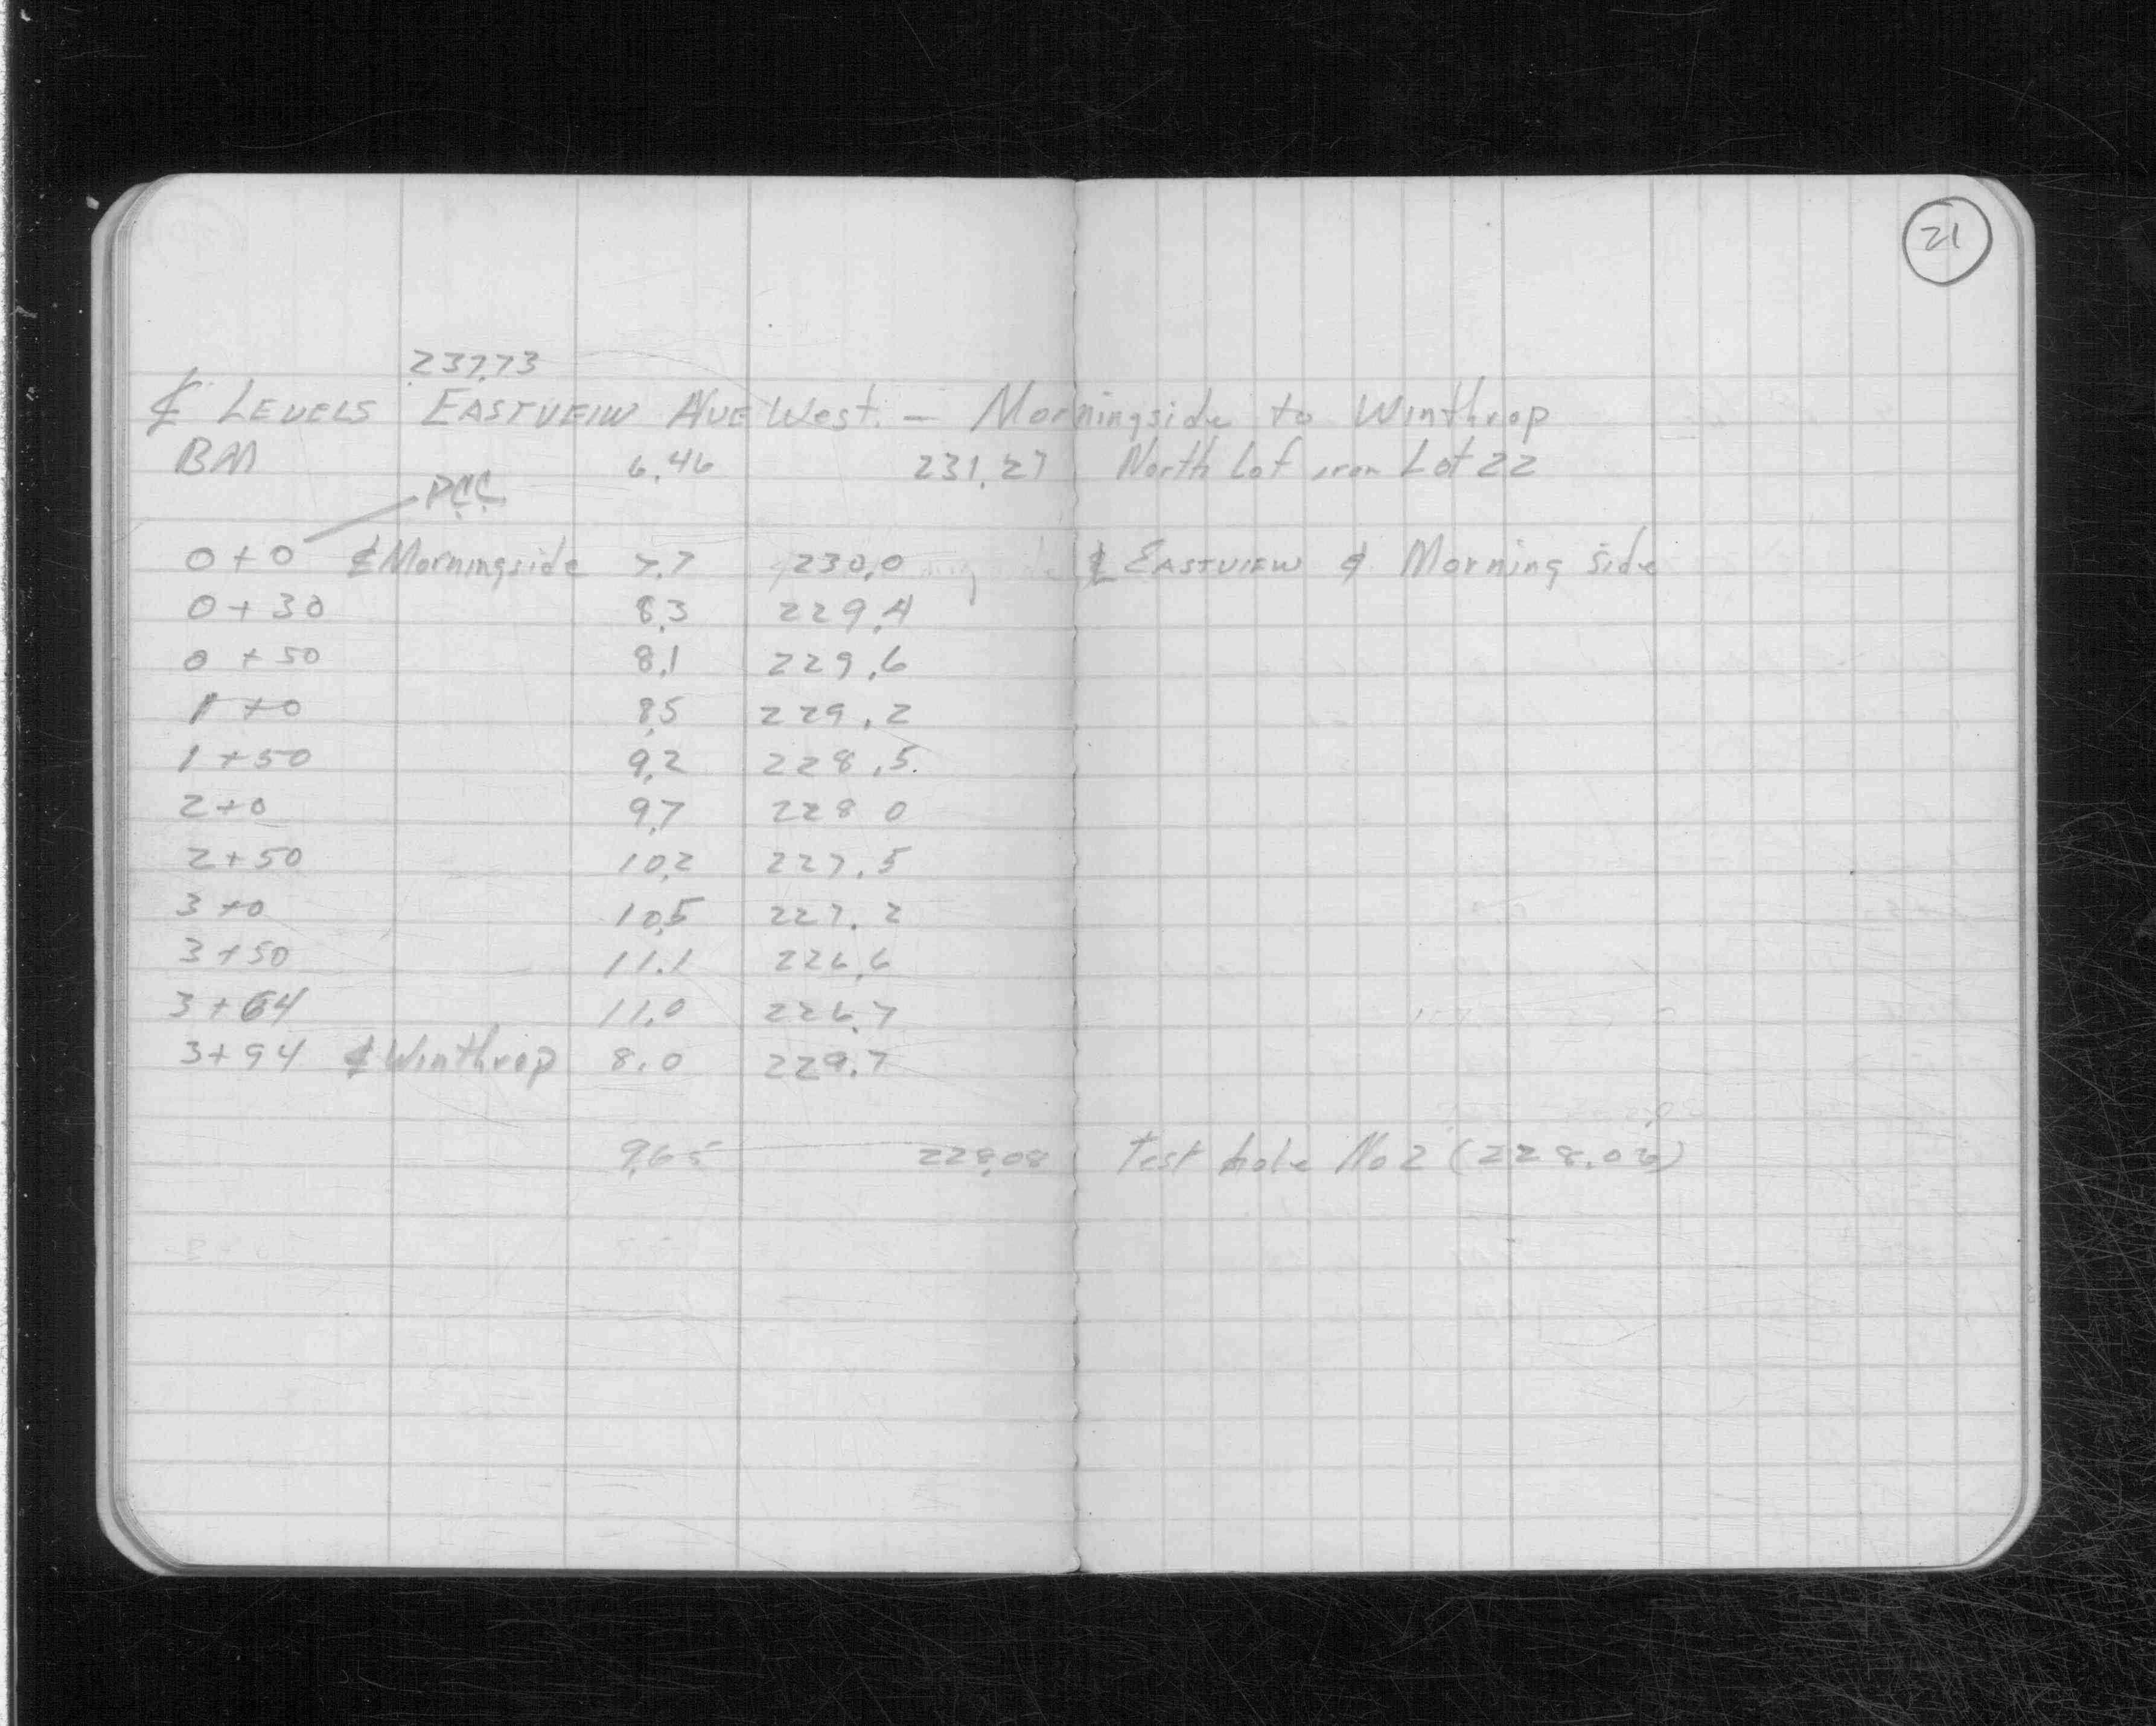 21
237.73
℄ LEVELS EASTVEIW AVE West. — Morningside to Winthrop
BM 6.46 231.27 North Lot iron Lot 22
P.C.C.
0+0 ℄ Morningside 7.7 230.0 ℄ EASTVIEW ℄ Morning side
0+30 8.3 229.4
0+50 8.1 229.6
1+0 8.5 229.2
1+50 9.2 228.5
2+0 9.7 228 0
2+50 10.2 227.5
3+0 10.5 227.2
3+50 11.1 226.6
3+64 11.0 226.7
3+94 ℄ Winthrop 8.0 229.7
9.65 228.08 Test hole No 2 (228.06)